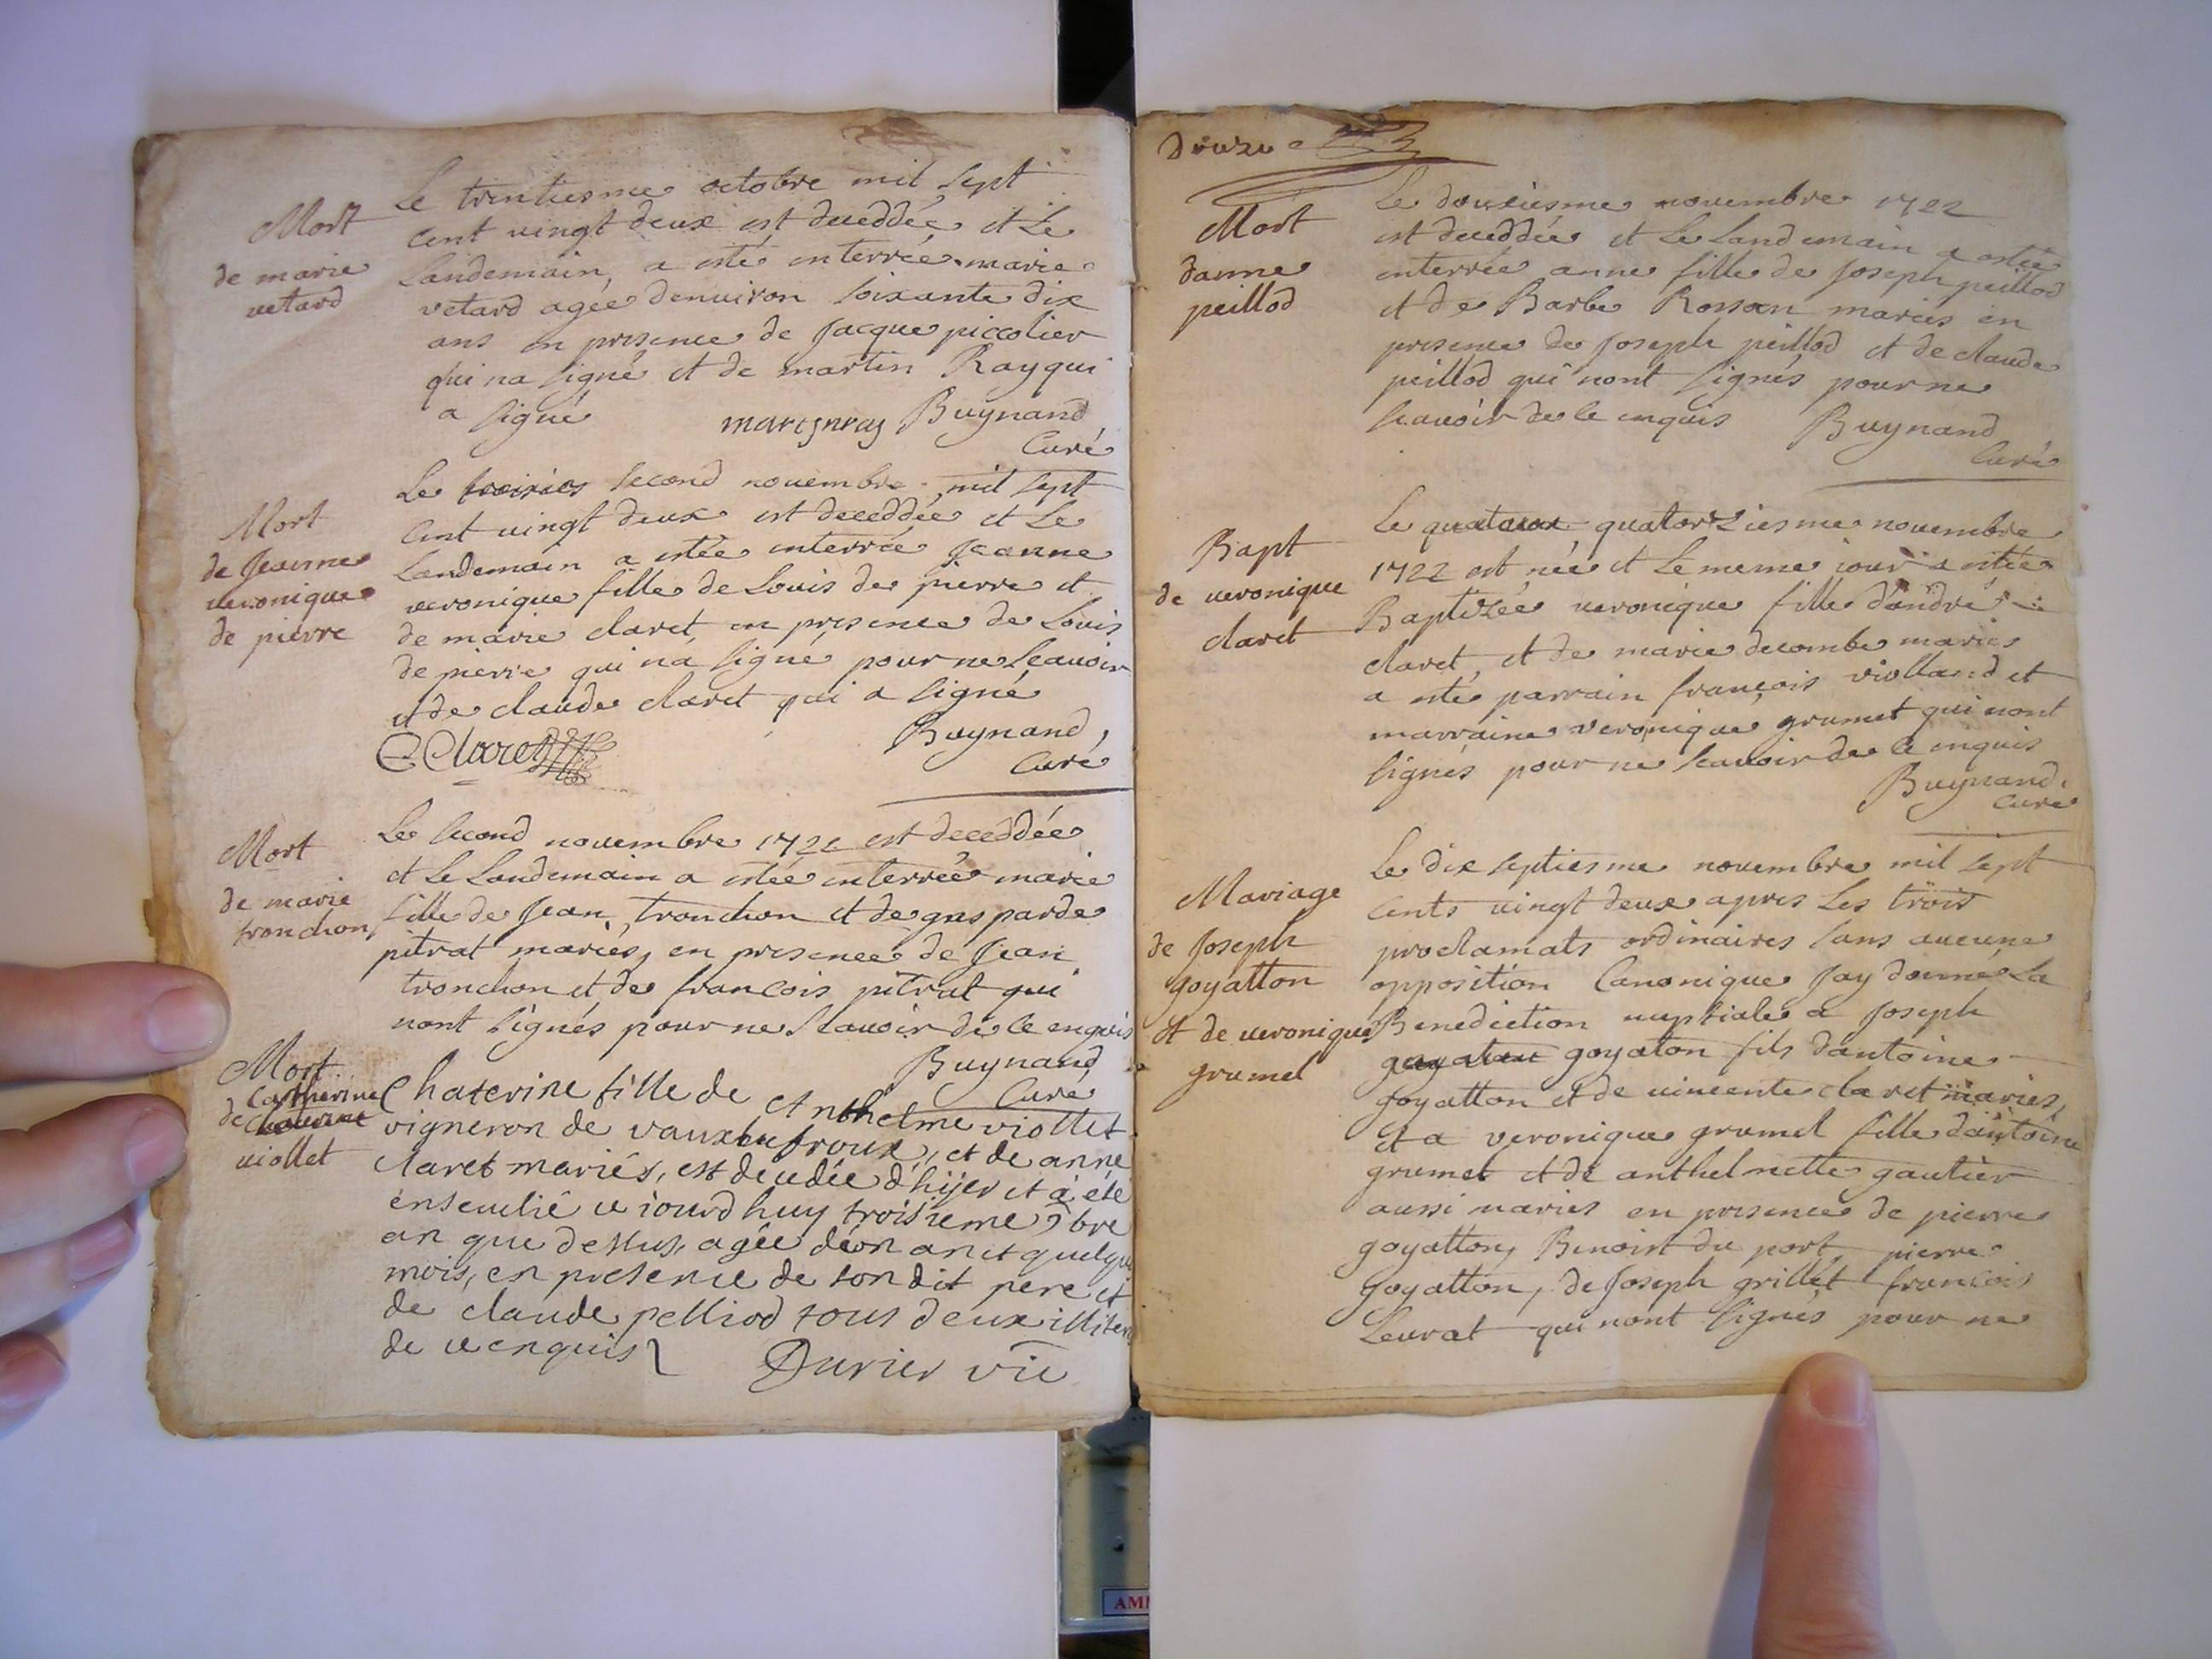 Mort
de marie
vetard
Le trentiesme octobre mil sept
cent vingt deux est deceddée et Le
Landemain, a estée enterrée marie
vetard agée denuiron soixante dix
ans en presence de Jacque piccolier
qui na signé et de martin Ray qui
a signé martin ray Buynand
Curé
Mort
de Jeanne
ueronique
de pierre
Le second nouembre mil sept
cent uingt deux est deceddée et Le
Landemain a estée enterrée Jeanne
ueronique fille de Louis de pierre et
de marie claret, en presence de Louis
de pierre qui na signé pour ne scauoir
et de claude claret qui a signé
Buynand,
C Claret Curé
Mort
de marie
tronchon
Le second nouembre 1722 est deceddée
et Le Landemain a estée enterrée marie
fille de Jean, tronchon et de gasparde
pitrat mariés, en presence de Jean
tronchon et de francois pitrat qui
nont signés pour ne scauoir de ce enquis
Buynand
Curé
Mort
Catherine
de
uiollet
Chaterine fille de Anthelme viollet
vigneron de vaux et de anne
claret mariés, est decedée d'hijer et a eté
enseuelie ce iourd huy troisieme 9bre
an que dessus, agée d'un an et quelque
mois, en presence de son dit pere et
de claude pelliod tous deux
de ce enquis
Durier vic
Douze
Mort
danne
peillod
Le douziesme nouembre 1722
est deceddée et Le Landemain a estée
enterrée anne fille de Joseph peillod
et de Barbe Rossan mariés en
presence de Joseph peillod et de claude
peillod qui nont signés pour ne
scauoir de ce enquis Buynand
Curé
Bapt
de ueronique
claret
Le quatorziesme nouembre
1722 est née et Le meme iour a estée
Baptizée ueronique fille dandré
claret, et de marie decombe mariés
a esté parrain françois violland et
marraine veronique grumet qui nont
signés pour ne scauoir de ce enquis
Buynand.
Curé
Mariage
de Joseph
goyatton
et de ueronique
grumel
Le dix septiesme nouembre mil sept
cents uingt deux apres Les trois
proclamats ordinaires sans aucune
opposition Canonique Jay donné La
Benediction nuptiale a Joseph
goyaton fils dantoine
goyatton et de uincente claret mariés,
et a veronique grumel fille dantoine
grumet et de anthelmette gautier
aussi mariés en presence de pierre
goyatton, Benoist du port, pierre
goyatton, de Joseph grillet francois
Leurat qui nont signés pour ne
AM